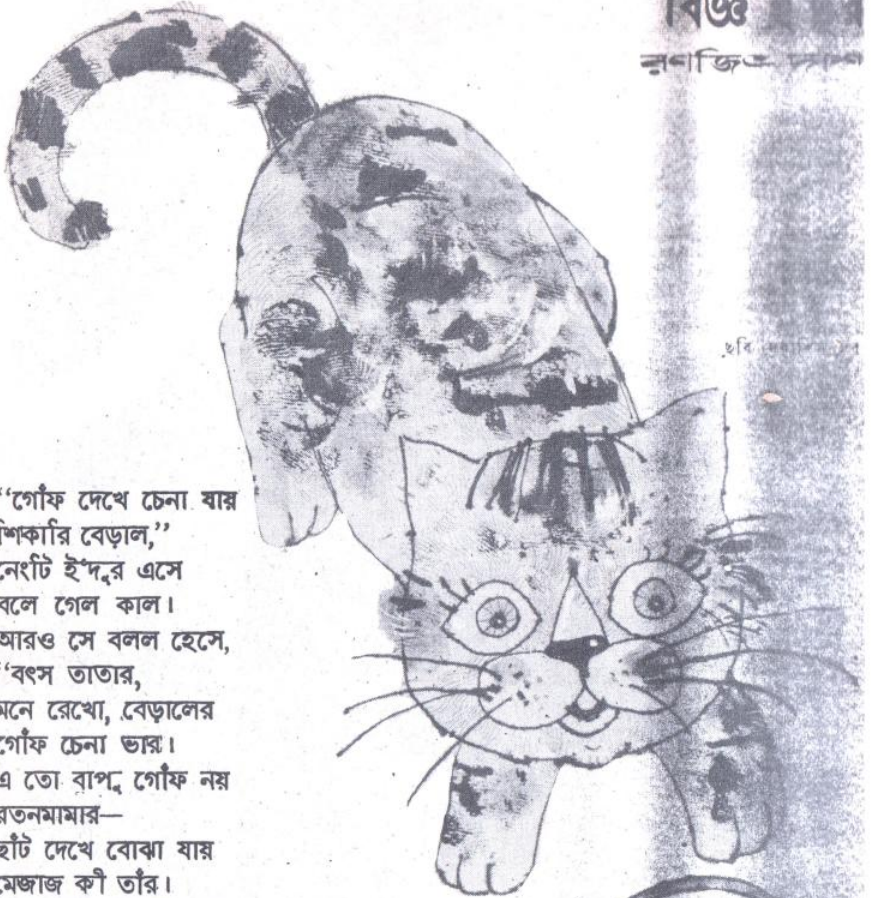 বিজ্ঞ
রণজিৎ দাশ
ছবি
“গোঁফ দেখে চেনা যায়
শিকারি বেড়াল,”
নেংটি ইঁদুর এসে
বলে গেল কাল।
আরও সে বলল হেসে,
“বৎস তাতার,
মনে রেখো, বেড়ালের
গোঁফ চেনা ভার।
এ তো বাপু গোঁফ নয়
রতনমামার—
ছাঁট দেখে বোঝা যায়
মেজাজ কী তাঁর।